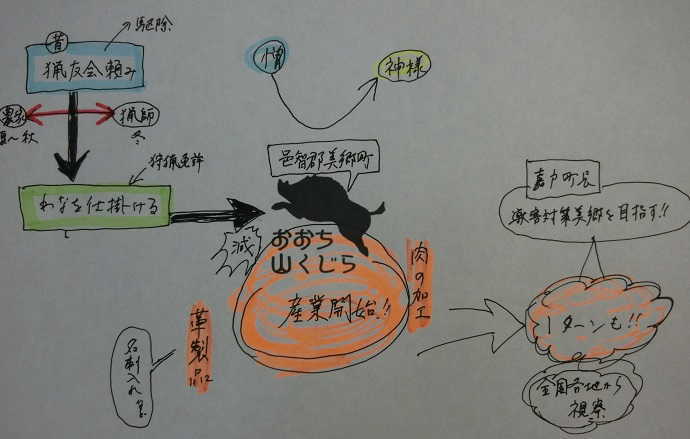 昔
駆除
猟友会頼み
農家
夏〜秋
猟師
冬
狩猟免許
わなを仕掛ける
憎
神様
邑智郡美郷町
減
おおち
山くじら
産業開始!!
肉の加工
革製品
P
名刺入れ
嘉戸町長
獣害対策美郷を目指す!!
Iターンも!!
全国各地から
視察